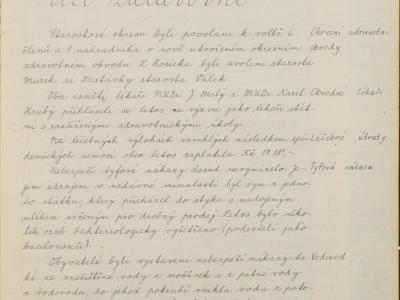 Věci zdravotní
Starostové okresu byli povoláni k volbě 6 Okresní zdravotní
členů a 1 náhradníka v nově utvořeném okresním obvody
zdravotním obvodu. Z Rosicka byli zvoleni starosta
Marek, ze Zastávky starosta Válek.
Oba rosičtí lékaři MUDr. J. Malý a MUDr. Karel Obvodní lékaři
Hrubý přihlásili se letos na výzvu jako lékaři stát-
ní s rozšířenými zdravotnickými úkoly.
Na léčebných výlohách vzniklých následkem epi- Léčebné útraty
demických nemocí obec letos zaplatila Kč 17.181,-.
Nebezpečí tyfové nákazy dosud nevymizelo. Je- Tyfová nákaza
jím zdrojem v nedávné minulosti byl syn z jedno-
ho statku, který přicházel do styku s nadojeným
mlékem určeným pro drobný prodej. Letos bylo něko-
lik osob bakteriologicky vyšetřeno (podezřelí jako
bacilonosiči).
Obyvatelé byli vystaveni nebezpečí nákazy ta- Vodovod
ké ze znečištěné vody z močůvek a z pitné vody
z vodovodu, do jehož potrubí vnikla voda z poto-